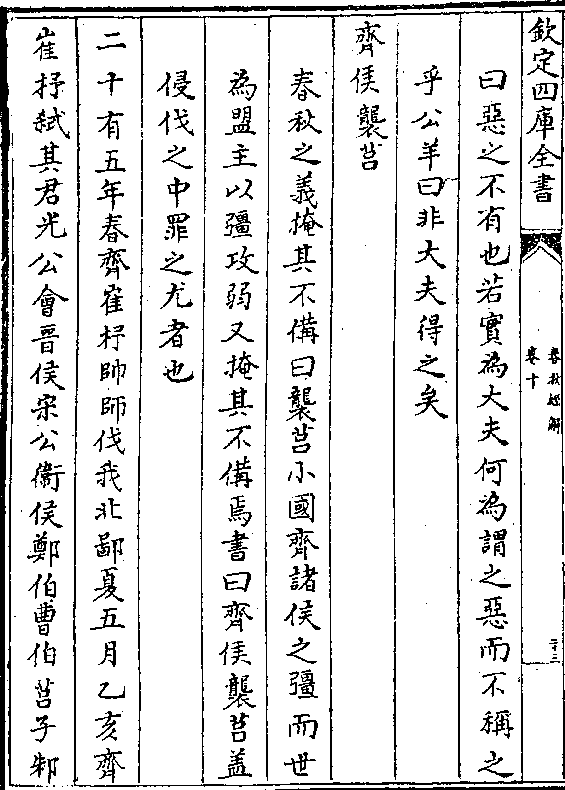 欽定四庫全書
春秋經解
卷十
二十三
曰惡之不有也若實為大夫何為謂之惡而不稱之
乎公羊曰非大夫得之矣
齊侯襲莒
春秋之義掩其不備曰襲莒小國齊諸侯之彊而世
為盟主以彊攻弱又掩其不備焉書曰齊侯襲莒盖
侵伐之中罪之尤者也
二十有五年春齊崔杼帥師伐我北鄙夏五月乙亥齊
崔杼弑其君光公會晉侯宋公衞侯鄭伯曹伯莒子邾